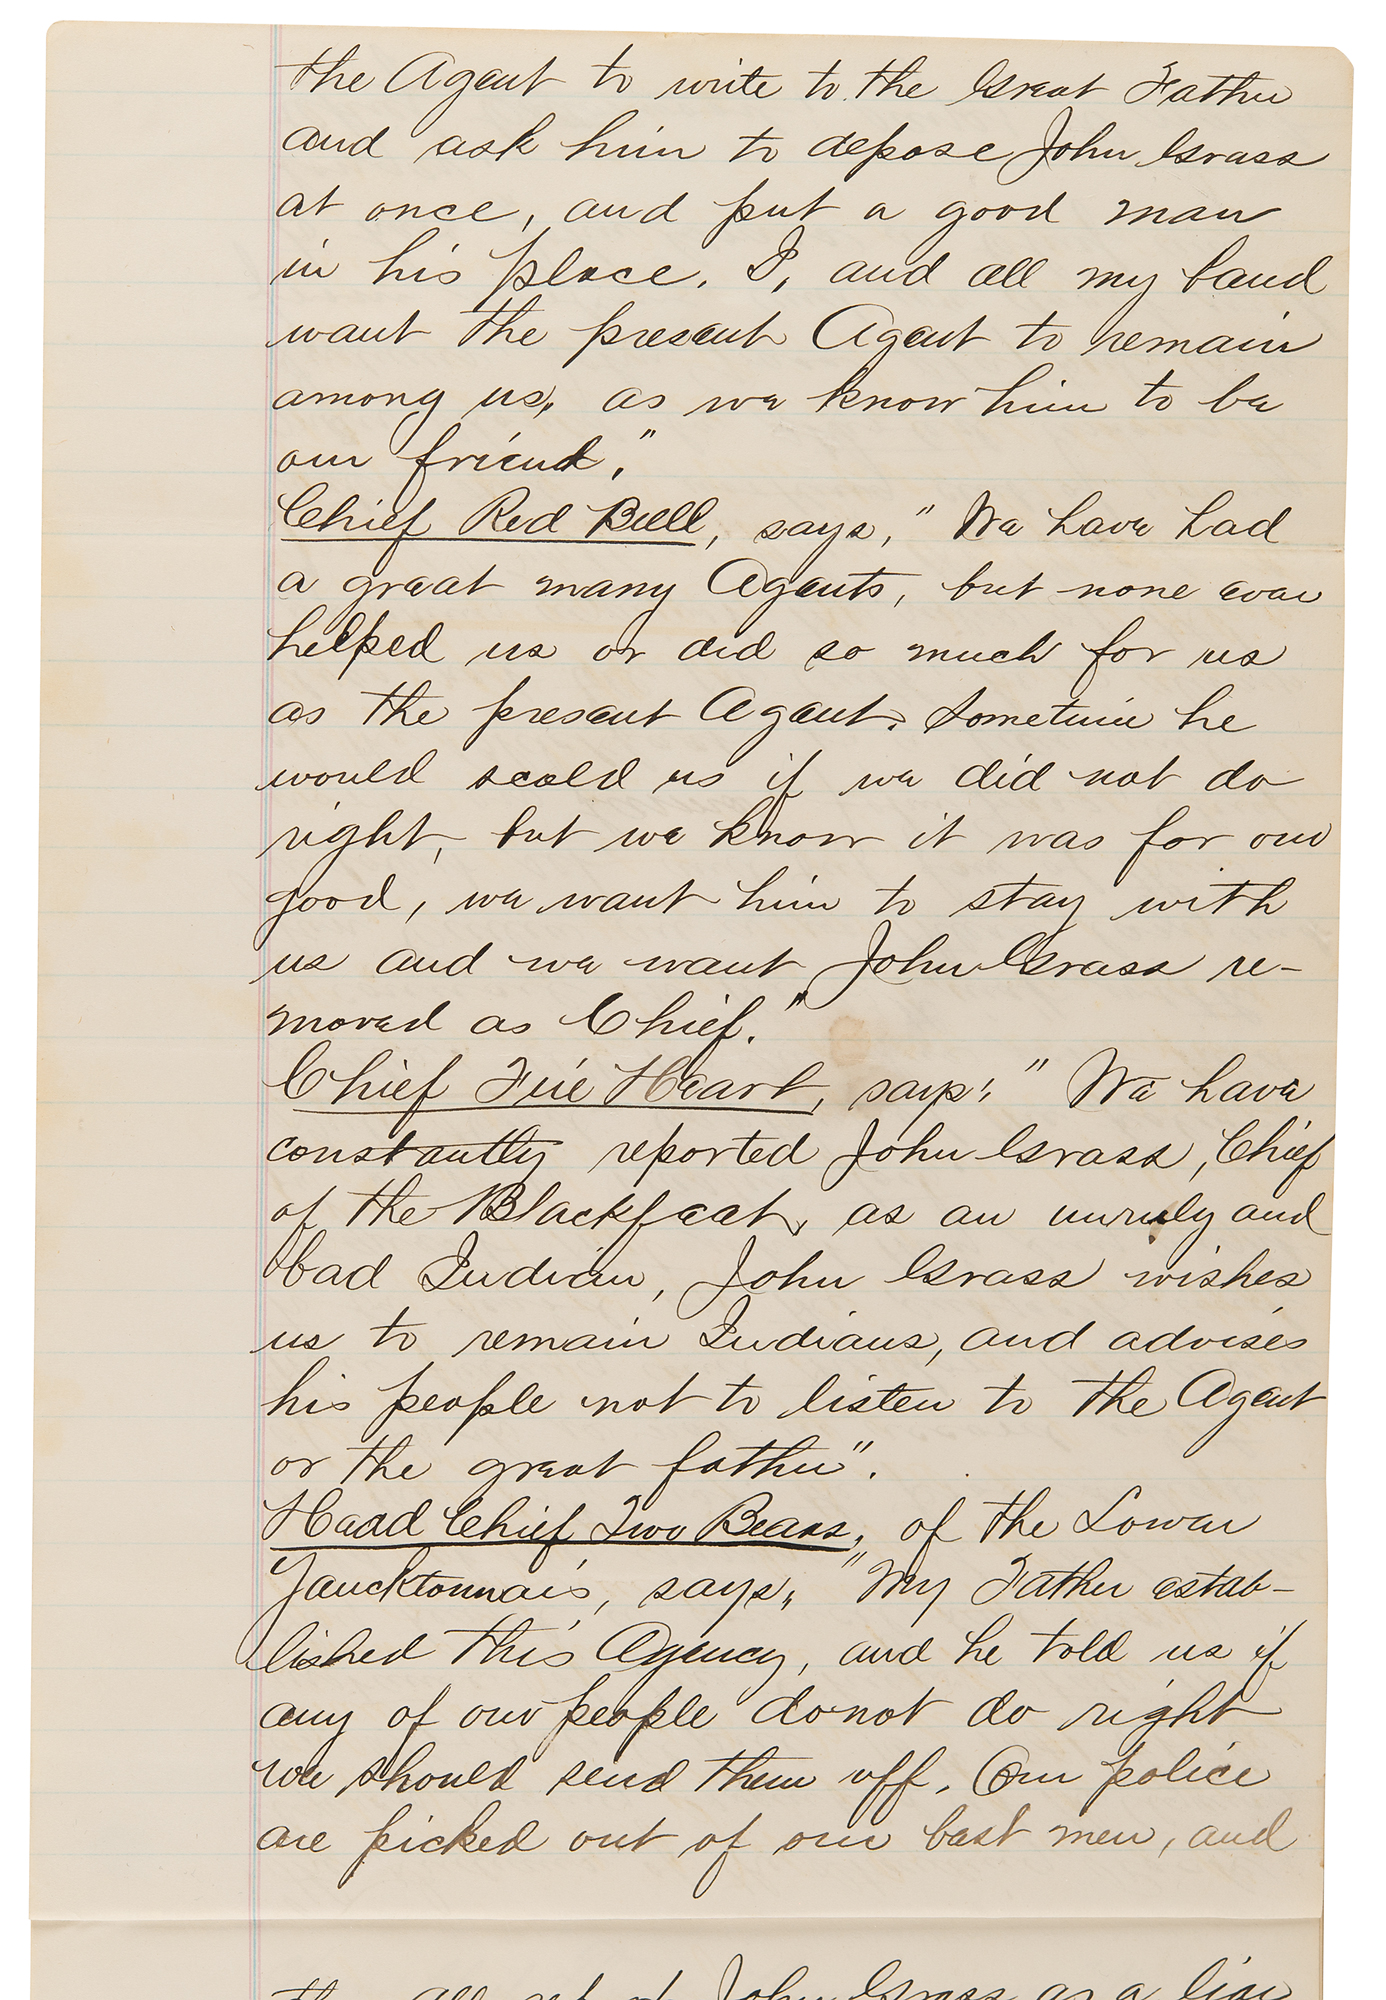 the Agent to write to the Great Father
and ask him to depose John Grass
at once, and put a good man
in his place. I, and all my band
want the present Agent to remain
among us, as we know him to be
our friend."
Chief Red Bull, says, "We have had
a great many Agents, but none ever
helped us or did so much for us
as the present Agent. Sometime he
would scold us if we did not do
right, but we know it was for our
good, we want him to stay with
us and we want John Grass re-
moved as Chief."
Chief Fire Heart, says: "We have
constantly reported John Grass, Chief
of the Blackfeet, as an unruly and
bad Indian, John Grass wishes
us to remain Indians, and advises
his people not to listen to the Agent
or the great father".
Head Chief Two Bears, of the Lower
Yancktonnais, says, "My Father estab-
lished this Agency, and he told us if
any of our people do not do right
we should send them off. Our police
are picked out of our best men, and
they all John Grass as a liar